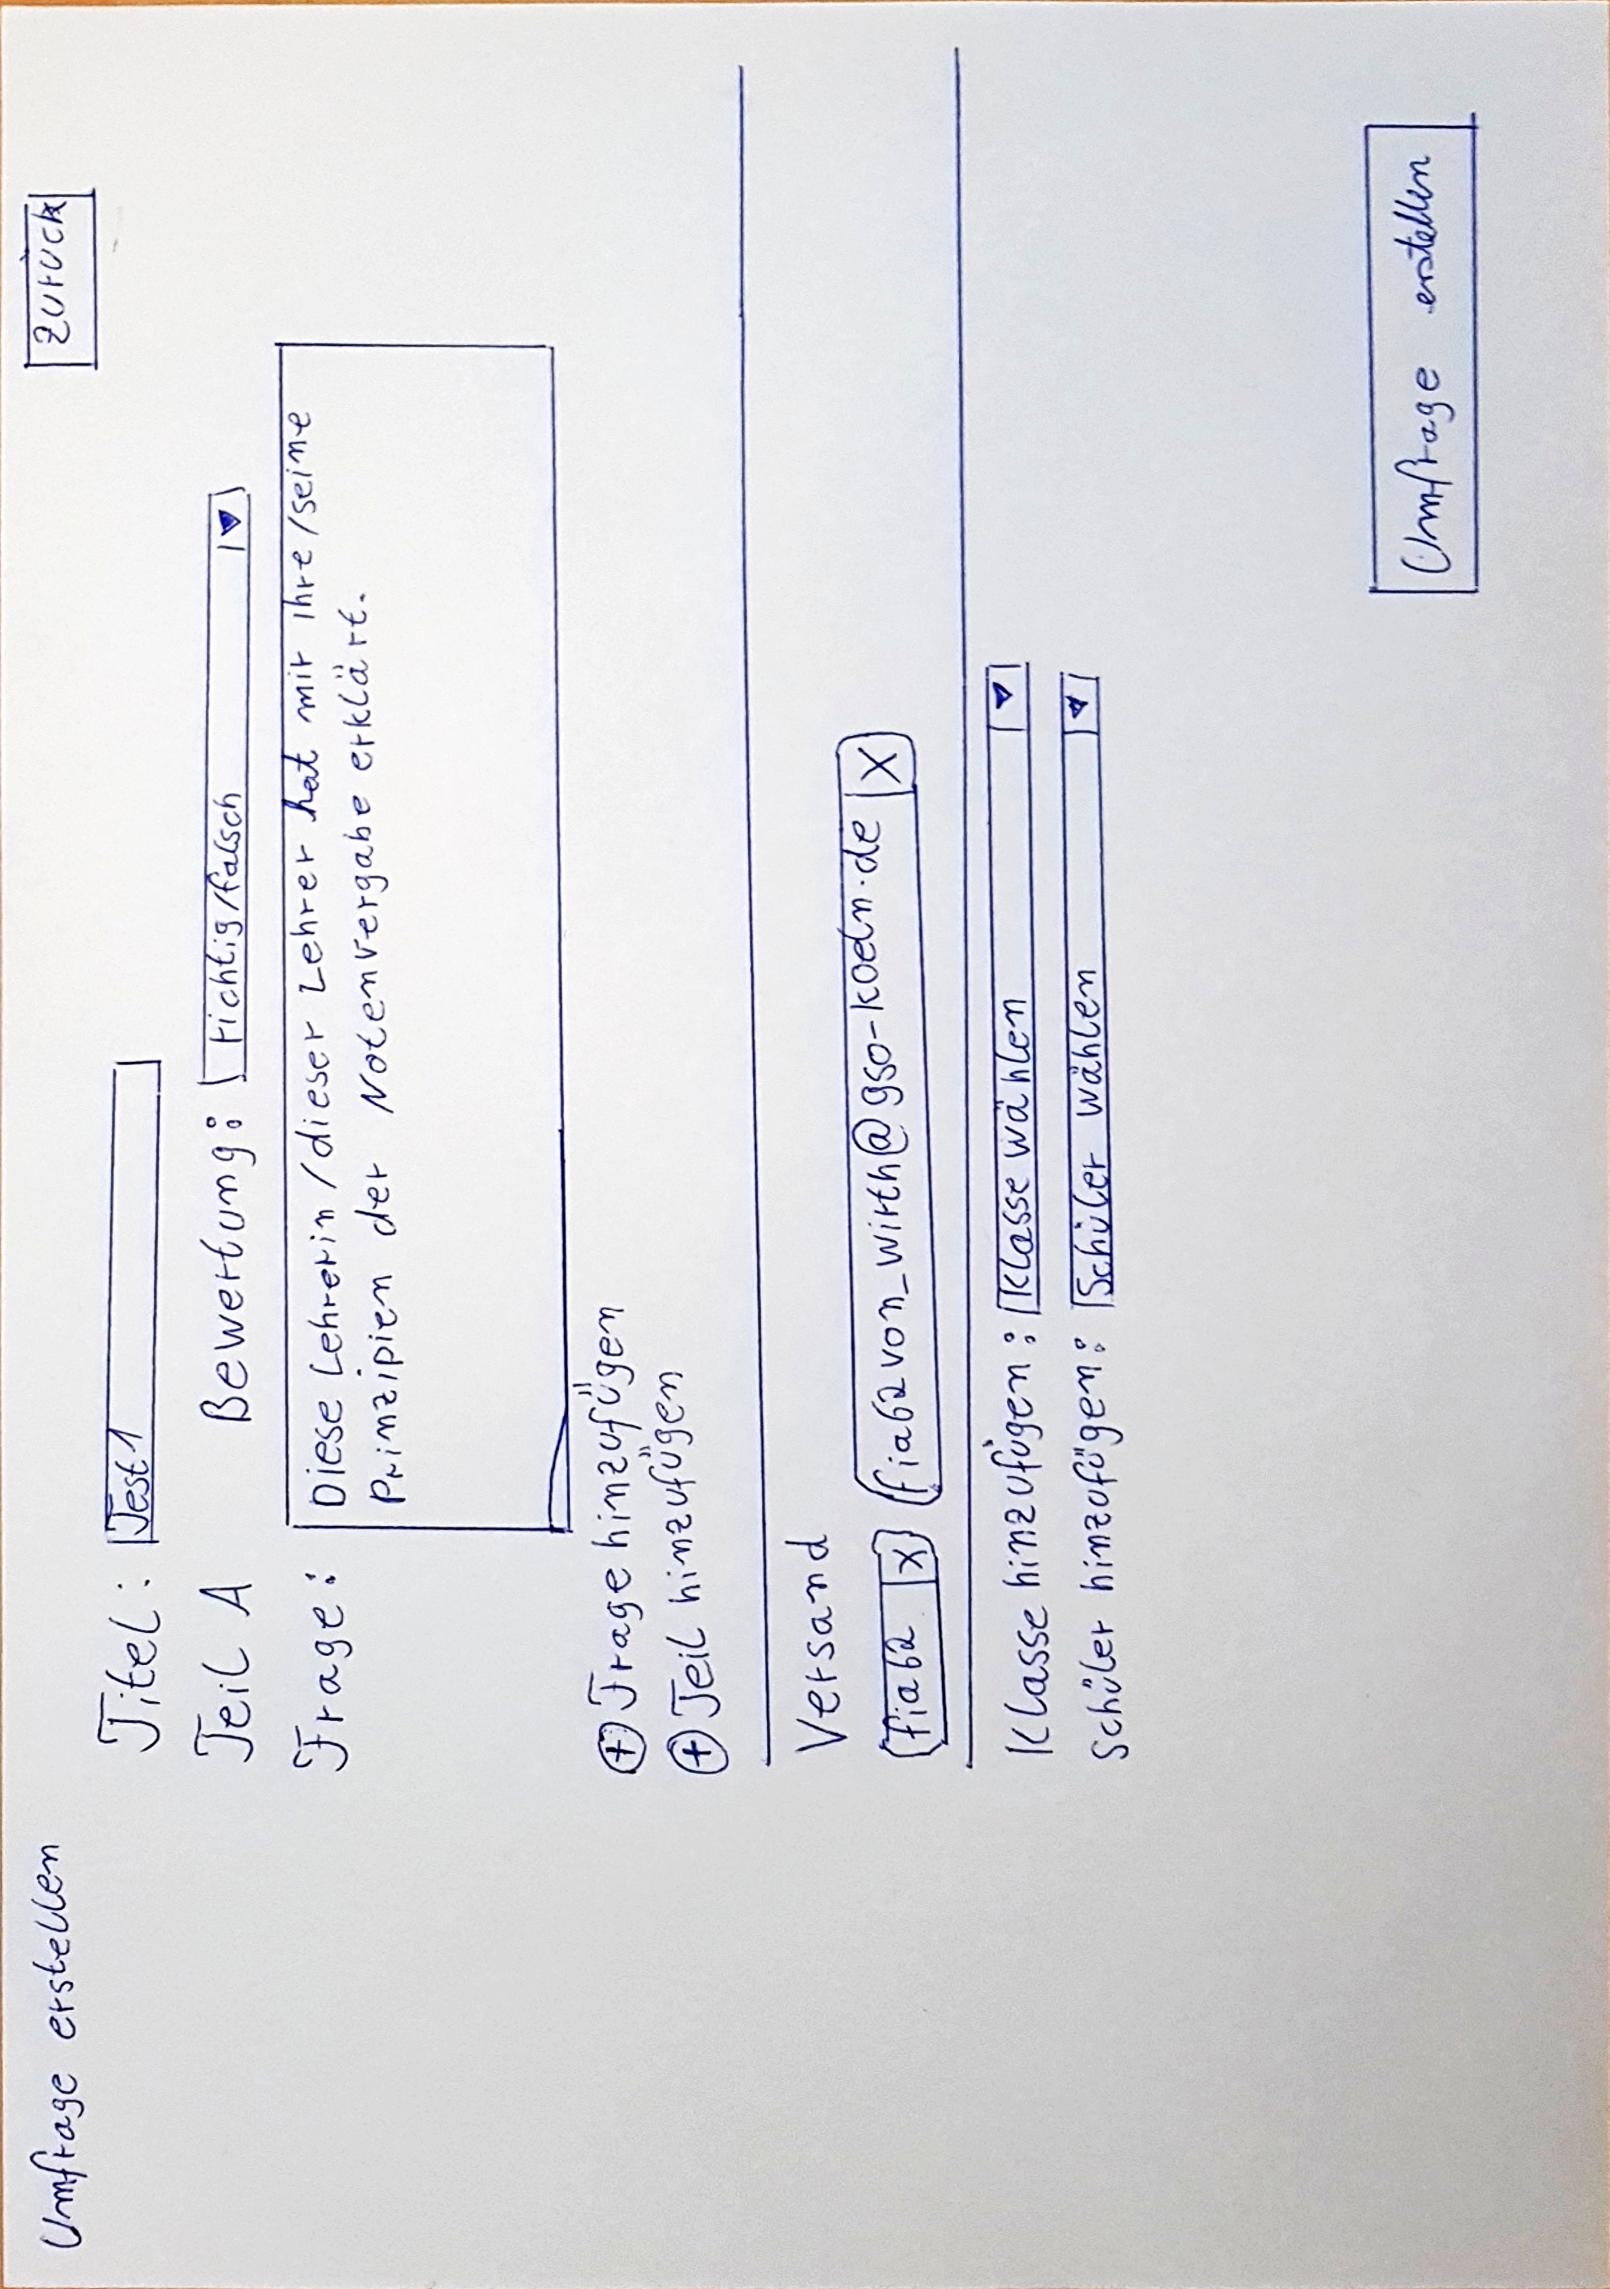 Umfrage erstellen
Zurück
Titel: Test 1
Teil A Bewertung: richtig/falsch
Frage: Diese Lehrerin/dieser Lehrer hat mir ihre/seine
Prinzipien der Notenvergabe erklärt.
+ Frage hinzufügen
+ Teil hinzufügen
Versand
fia62 X fia62von_wirth@gso-koeln.de X
Klasse hinzufügen: Klasse wählen
Schüler hinzufügen: Schüler wählen
Umfrage erstellen